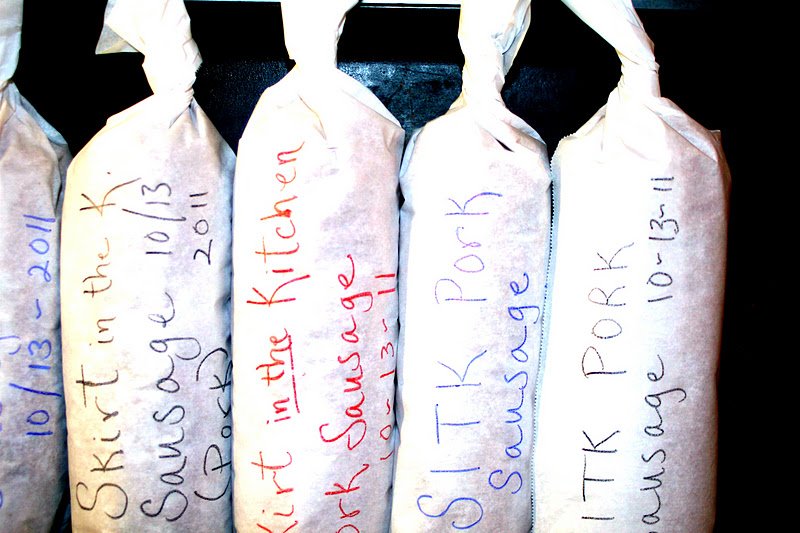 10/13-2011
Skirt in the K.
Sausage 10/13
(Pork) 2011
kirt in the Kitchen
ork Sausage
10-13-11
SITK Pork
Sausage
ITK PORK
ausage 10-13-11